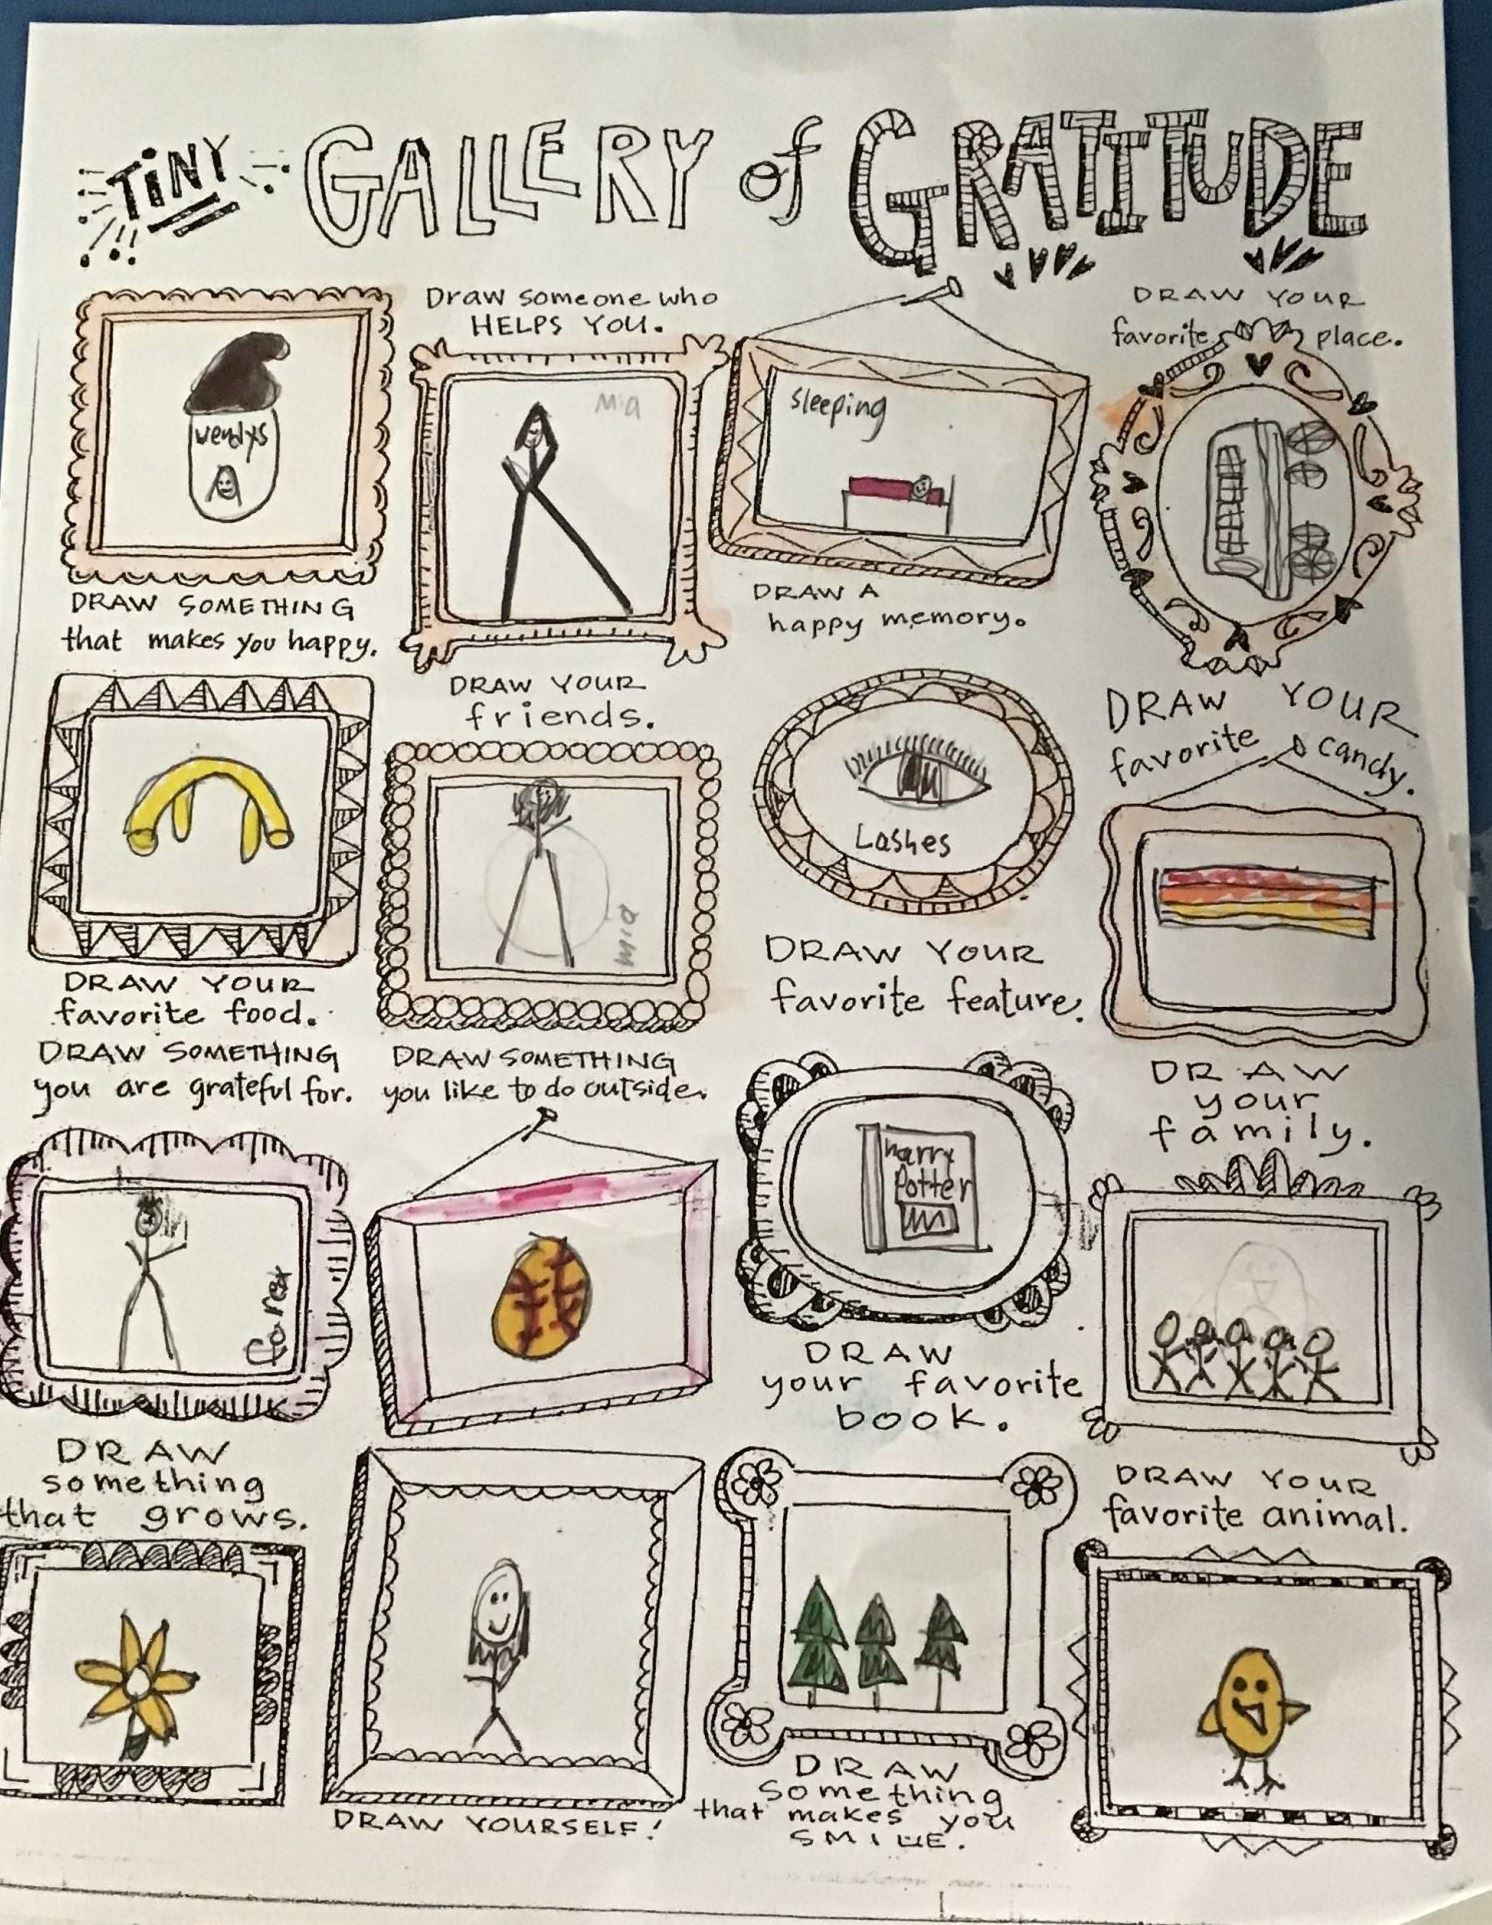 TiNY GALLERY of GRATITUDE
wendys
DRAW SOMETHING
that makes you happy.
Draw someone who
HELPS YOU.
Mia
sleeping
DRAW A
happy memory.
DRAW YOUR
favorite place.
DRAW YOUR
favorite food.
DRAW YOUR
friends.
mia
Lashes
DRAW YOUR
favorite feature.
DRAW YOUR
favorite candy.
DRAW SOMETHING
you are grateful for.
DRAW SOMETHING
you like to do outside.
harry
Potter
DRAW
your favorite
book.
DRAW
your
family.
DRAW
something
that grows.
DRAW YOURSELF!
DRAW
something
that makes you
SMILE.
DRAW YOUR
favorite animal.